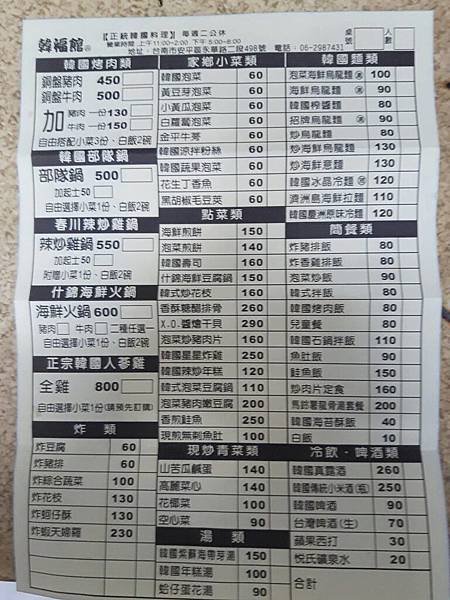 韓福館
【正統韓國料理】 每週二公休
營業時間 上午11:00~2:00 下午5:00~8:00
地址:台南市安平區永華路二段498號 電話:06-2987431
桌號
人數
韓國烤肉類
銅盤豬肉 450
銅盤牛肉 500
加 豬肉 一份 130
牛肉 一份 150
自由搭配小菜3份、白飯2碗
韓國部隊鍋
部隊鍋 500
加起士50
自由選擇小菜1份、白飯2碗
春川辣炒雞鍋
辣炒雞鍋 550
加起士50
附贈小菜1份、白飯2碗
什錦海鮮火鍋
海鮮火鍋 600
豬肉 牛肉 二種任選一
自由選擇小菜1份、白飯2碗
正宗韓國人蔘雞
全雞 800
自由選擇小菜1份(請預先訂購)
炸 類
炸豆腐 60
炸豬排 60
炸綜合蔬菜 100
炸花枝 130
炸蚵仔酥 130
炸蝦天婦羅 230
家鄉小菜類
韓國泡菜 60
黃豆芽泡菜 60
小黃瓜泡菜 60
白蘿蔔泡菜 60
金平牛蒡 60
韓國涼拌粉絲 60
韓國蔬果泡菜 60
花生丁香魚 60
黑胡椒毛豆莢 60
點菜類
海鮮煎餅 150
泡菜煎餅 140
韓國壽司 160
什錦海鮮豆腐鍋 150
韓式炒花枝 160
香酥糖醋排骨 260
X.O.醬燴干貝 290
泡菜炒豬肉片 160
韓國星星炸雞 250
韓國辣炒年糕 120
韓式泡菜豆腐鍋 110
泡菜豬肉嫩豆腐 200
香煎鮭魚 250
現煎無刺魚肚 100
現炒青菜類
山苦瓜鹹蛋 140
高麗菜心 140
花椰菜 100
空心菜 90
湯 類
韓國紫蘇海帶芽湯 150
韓國年糕湯 100
蛤仔蛋花湯 90
韓國麵類
泡菜海鮮烏龍麵 100
海鮮烏龍麵 90
韓國榨醬麵 80
招牌烏龍麵 90
炒烏龍麵 80
炒海鮮烏龍麵 130
炒海鮮意麵 130
韓國水晶冷麵 120
濟洲島海鮮拉麵 110
韓國慶洲原味冷麵 120
簡餐類
炸豬排飯 80
炸香雞排飯 80
泡菜炒飯 90
韓式拌飯 80
韓國烤肉飯 80
兒童餐 80
韓國石鍋拌飯 110
魚肚飯 90
鮭魚飯 150
炒肉片定食 160
馬鈴薯龍骨湯套餐 200
韓國海苔酥飯 40
白飯 10
冷飲・啤酒類
韓國真露酒 260
韓國傳統小米酒(瓶) 250
韓國啤酒 90
台灣啤酒(生) 70
蘋果西打 30
悅氏礦泉水 20
合計